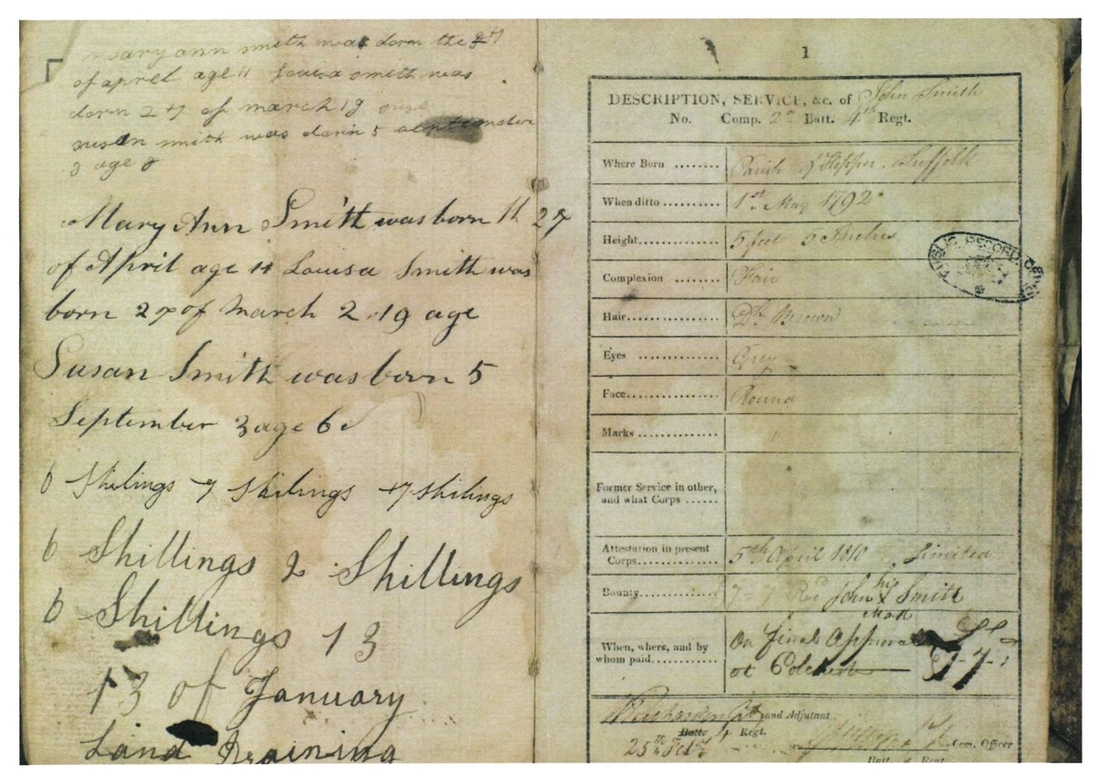 mary ann smith was born the
of aprel age 11 louisa smith was
born 2+7 of march 19
susan smith was born 5
3 age
Mary Ann Smith was born 11 27
of April age 11 Louisa Smith was
born 27 of march 2.19 age
Susan Smith was born 5
September 3 age 6
6 Shilings 7 Shilings +7 shilings
6 Shillings 2 Shillings
6 Shillings 13
13 of January
Land
1
DESCRIPTION, SERVICE, &c. of John Smith
No. Comp. 2d Batt. 4th Regt.
Where Born ........ Parish of Suffolk
When ditto .......... 1st May 1792
Height............... 5 feet 5 Inches
Complexion ......... Fair
Hair................. Dk Brown
Eyes ............... Grey
Face................. Round
Marks ...............
Former Service in other,
and what Corps ......
Attestation in present
Corps............... 5th April 1810 Limited
Bounty............... 7 = 7 John his X Smith
Mark
When, where, and by
whom paid............ On final
at 7-7-
and Adjutant
Batt. 4 Regt.
25th Com. Officer
PUBLIC RECORD OFFICE